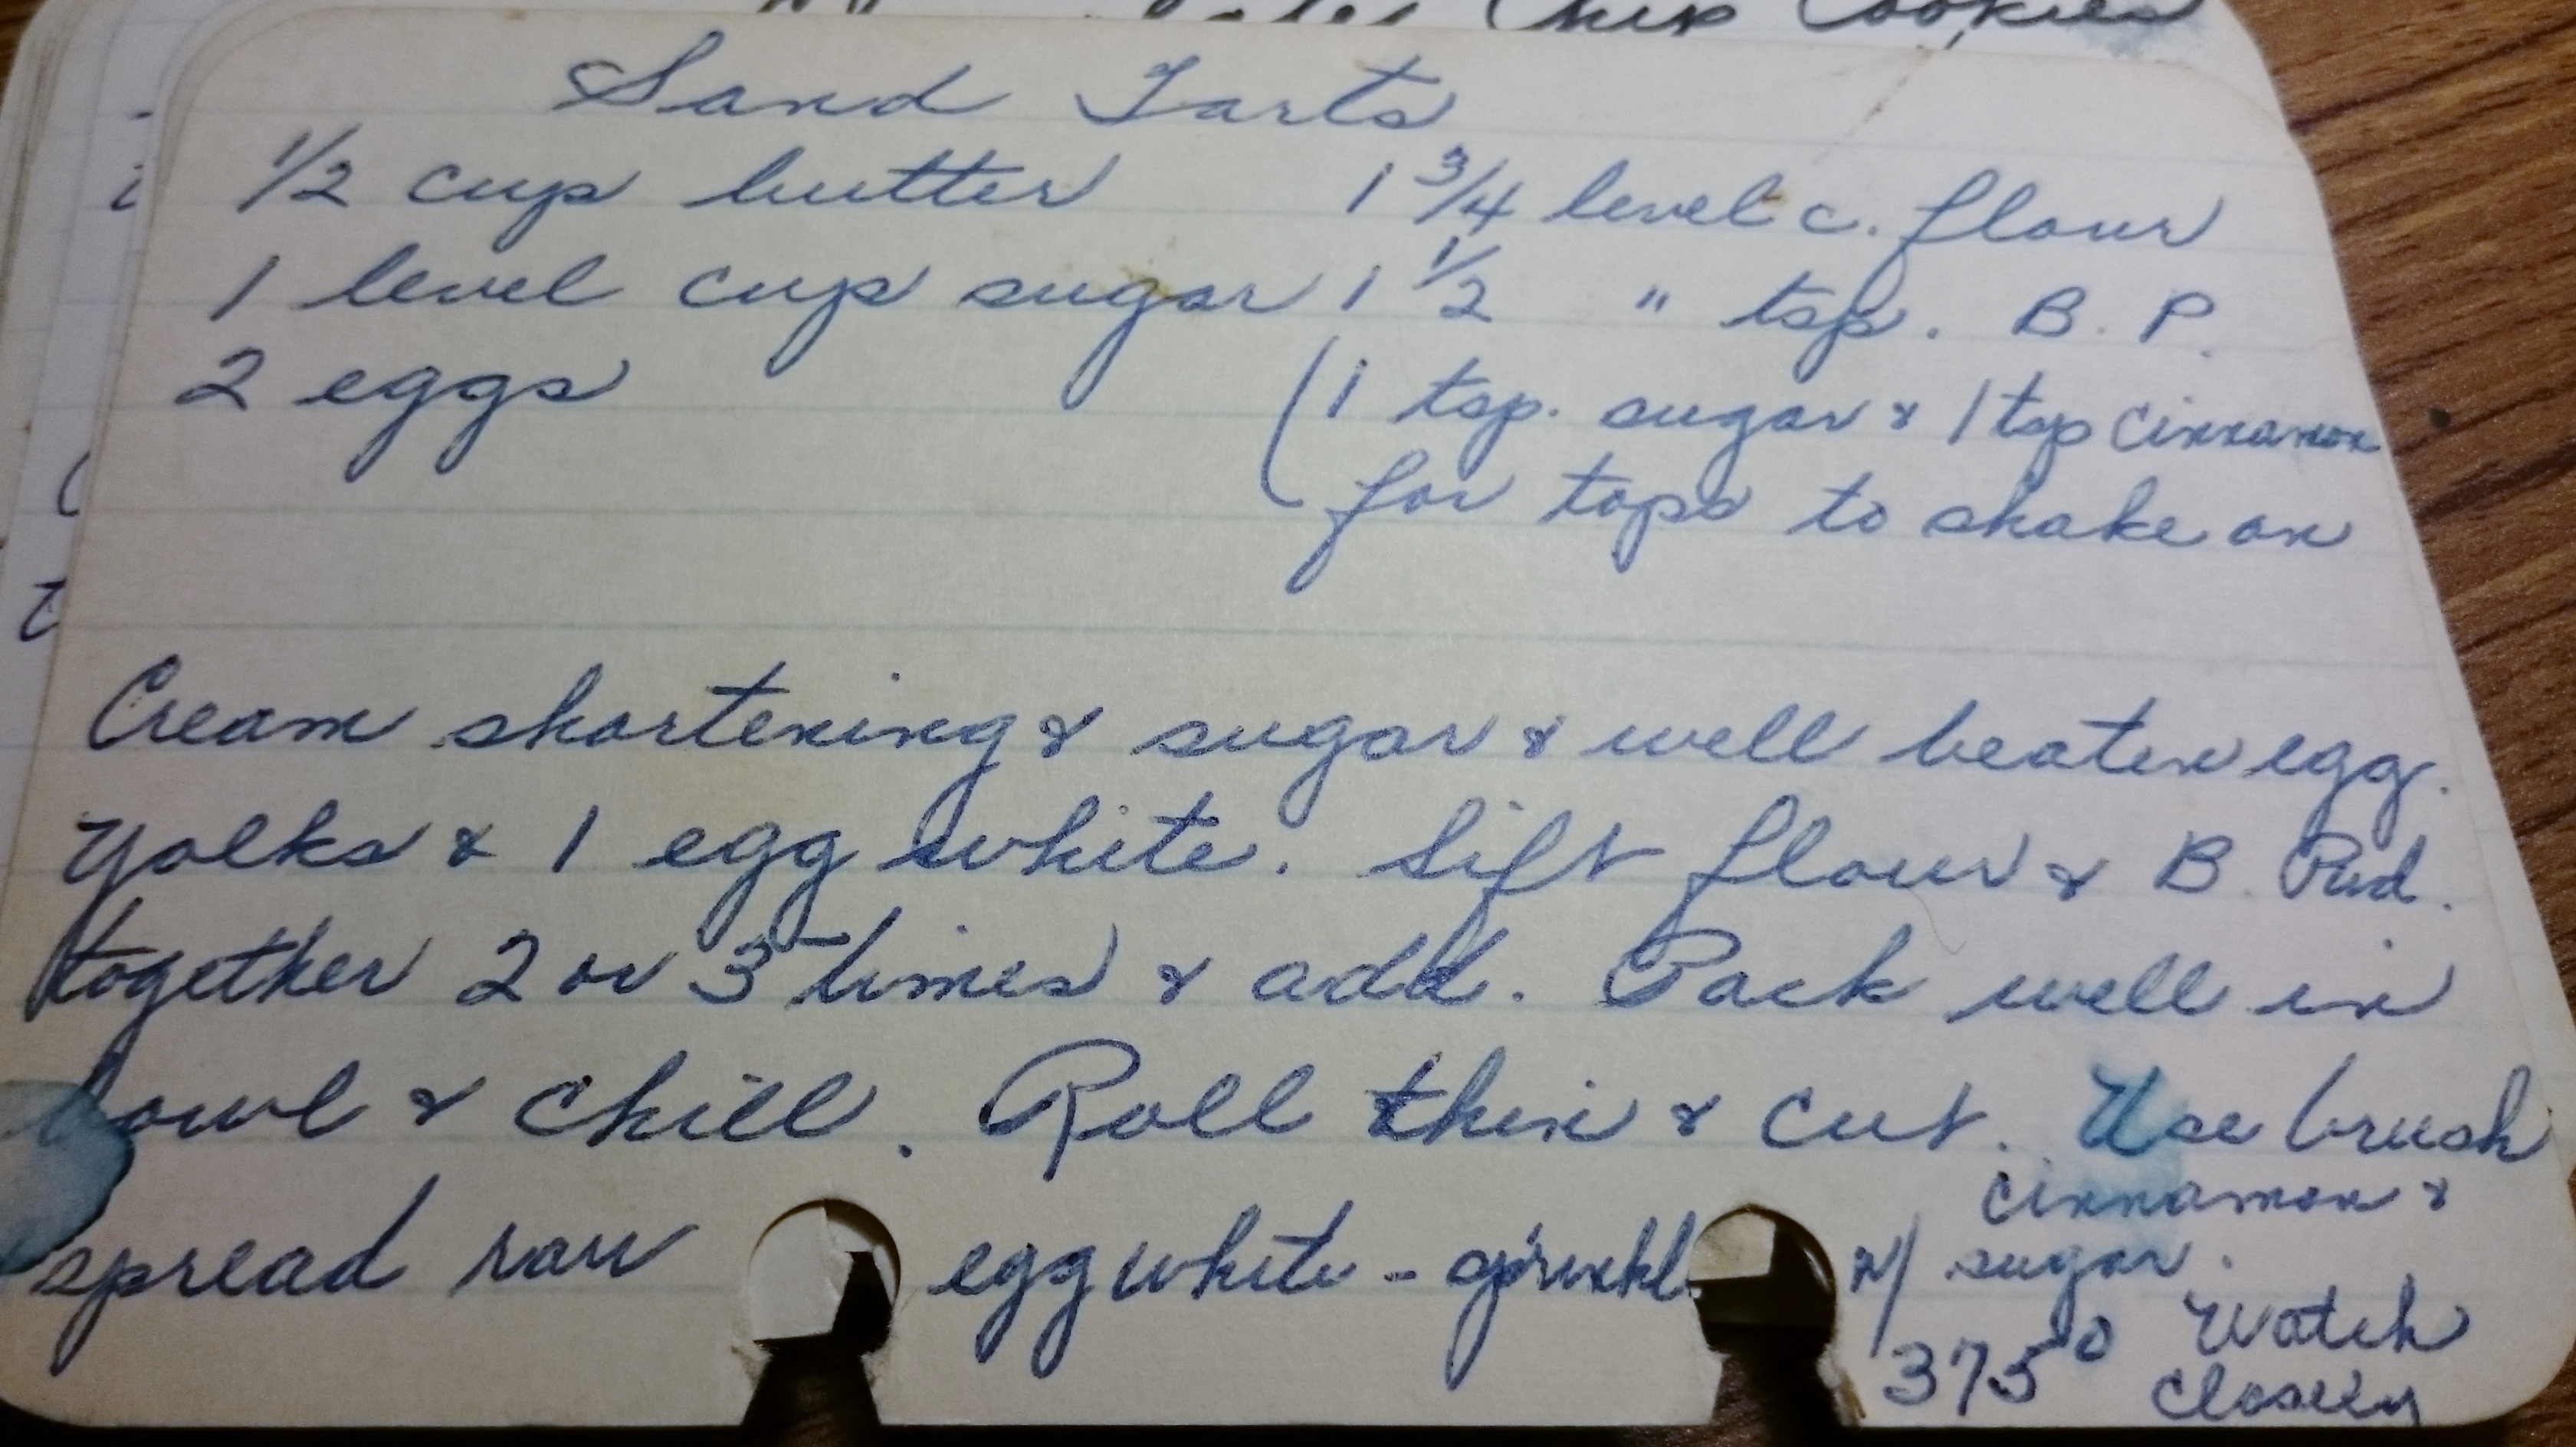 Chip Cookies
Sand Tarts
1/2 cup butter 1 3/4 level c. flour
1 level cup sugar 1 1/2 " tsp. B. P.
2 eggs (1 tsp. sugar & 1 tsp cinnamon
for tops to shake on
Cream shortening & sugar & well beaten egg
yolks & 1 egg white. Sift flour & B. Pwd.
together 2 or 3 times & add. Pack well in
bowl & chill. Roll thin & cut. Use brush
spread raw egg white - sprinkle w/ cinnamon &
sugar.
375° Watch
closely